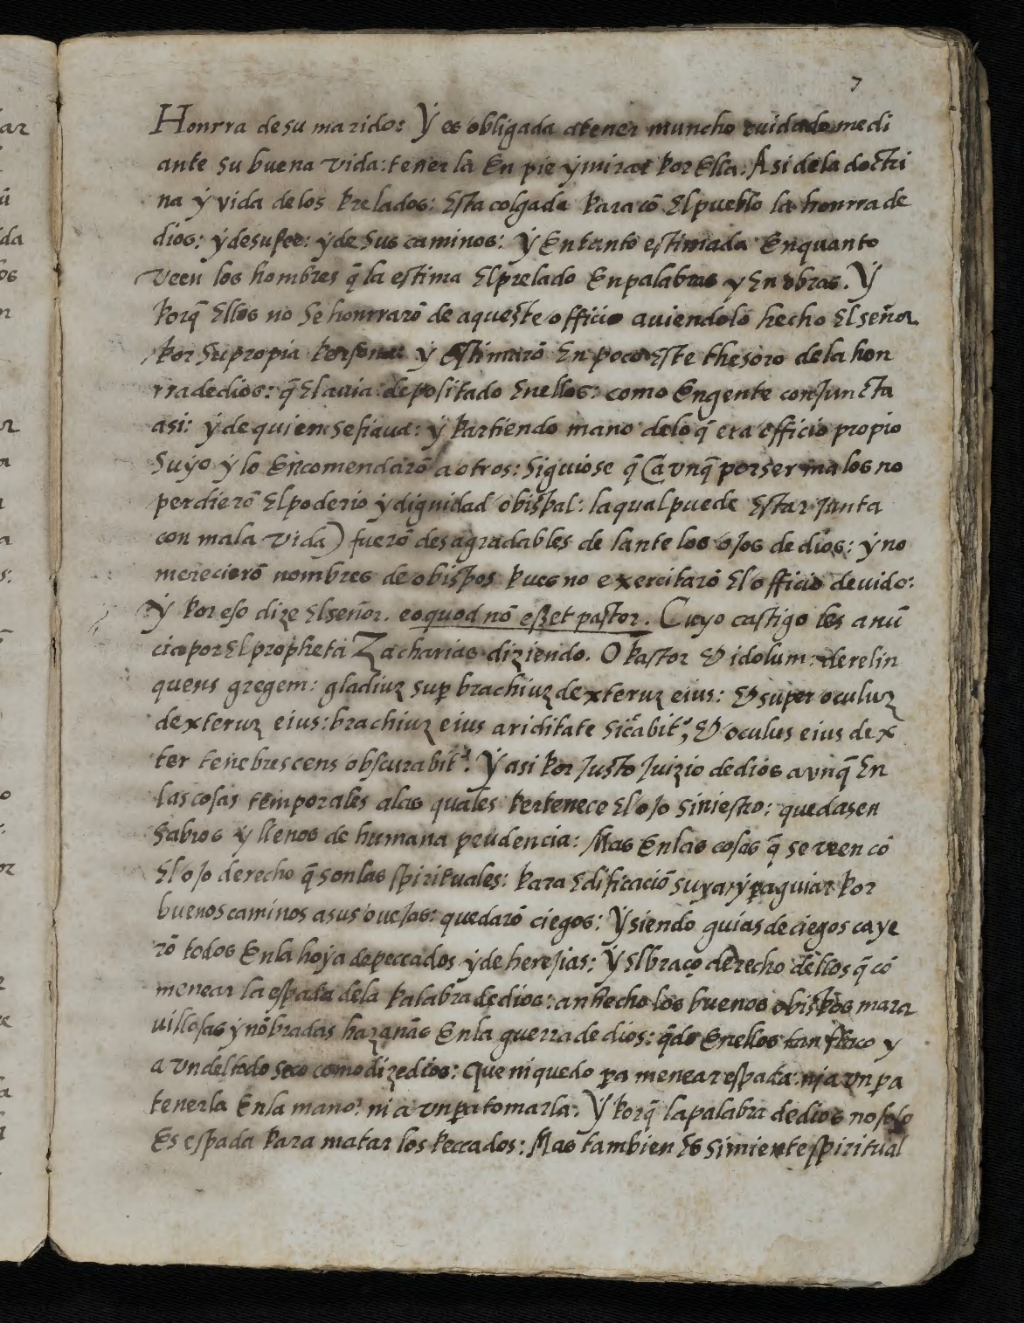 7
Honrra de su marido: Ý es obligada a tener muncho cuidado medi
ante su buena vida: tenerla En pie ý mirar por Ella: Asi de la doctri
na ý vida de los prelados: Esta colgada para cō El pueblo la honrra de
dios: ý de su fee: ý de sus caminos: Ý En tanto estimada En quanto
veen los hombres q̄ la estima El prelado En palabras y En obras. Ý
porq̄ Ellos no se honrrarō de aqueste officio auiendolo hecho El señor
por su propia persona: ý Estimarō En poco Este thesoro de la hon
rra de dios: q̄ El auia depositado En ellos: como En gente conjuncta
asi: ý de quien se fiaua: ý partiendo mano de lo q̄ era officio propio
suýo ý lo Encomendarō a otros: siguiose q̄ (a vnq̄ por ser malos no
perdierō El poderio ý dignidad obispal: la qual puede Estar junta
con mala vida) fuerō desagradables delante los ojos de dios: ý no
merecierō nombres de obispos pues no exercitarō El officio deuido:
Ý por eso dize El señor. eo quod nō esset pastor. Cuyo castigo les anū
cia por El propheta Zacharias diziendo. O pastor & idolum: derelin
quens gregem: gladiuz sup̱ brachiuz dexteruz eius: & super oculuz
dexteruz eius: brachiuz eius ariditate siccabit᷒, & oculus eius dex
ter tenebrescens obscurabit᷒. Ý asi por justo juizio de dios avnq̄ En
las cosas temporales a las quales pertenece El ojo siniestro: quedasen
sabios y llenos de humana prudencia: Mas En las cosas q̄ se veen cō
El ojo derecho q̄ son las spirituales: para Edificaciō suya, ý p̱a guiar por
buenos caminos a sus ouejas: quedarō ciegos: Ý siendo guias de ciegos caye
rō todos En la hoýa de peccados ý de herejias: Ý El braço derecho dellos q̄ cō
menear la espada de la palabra de dios: an hecho los buenos obispos mara
uillosas ý nōbradas hazañas En la guerra de dios: q̄do En ellos tan flaco y
a vn del todo seco como dize dios: Que ni quedo p̱a menear espada: ni a vn p̱a
tenerla En la mano: ni a vn p̱a tomarla. Ý porq̄ la palabra de dios no solo
Es espada para matar los peccados: Mas tambien Es simiente spiritual